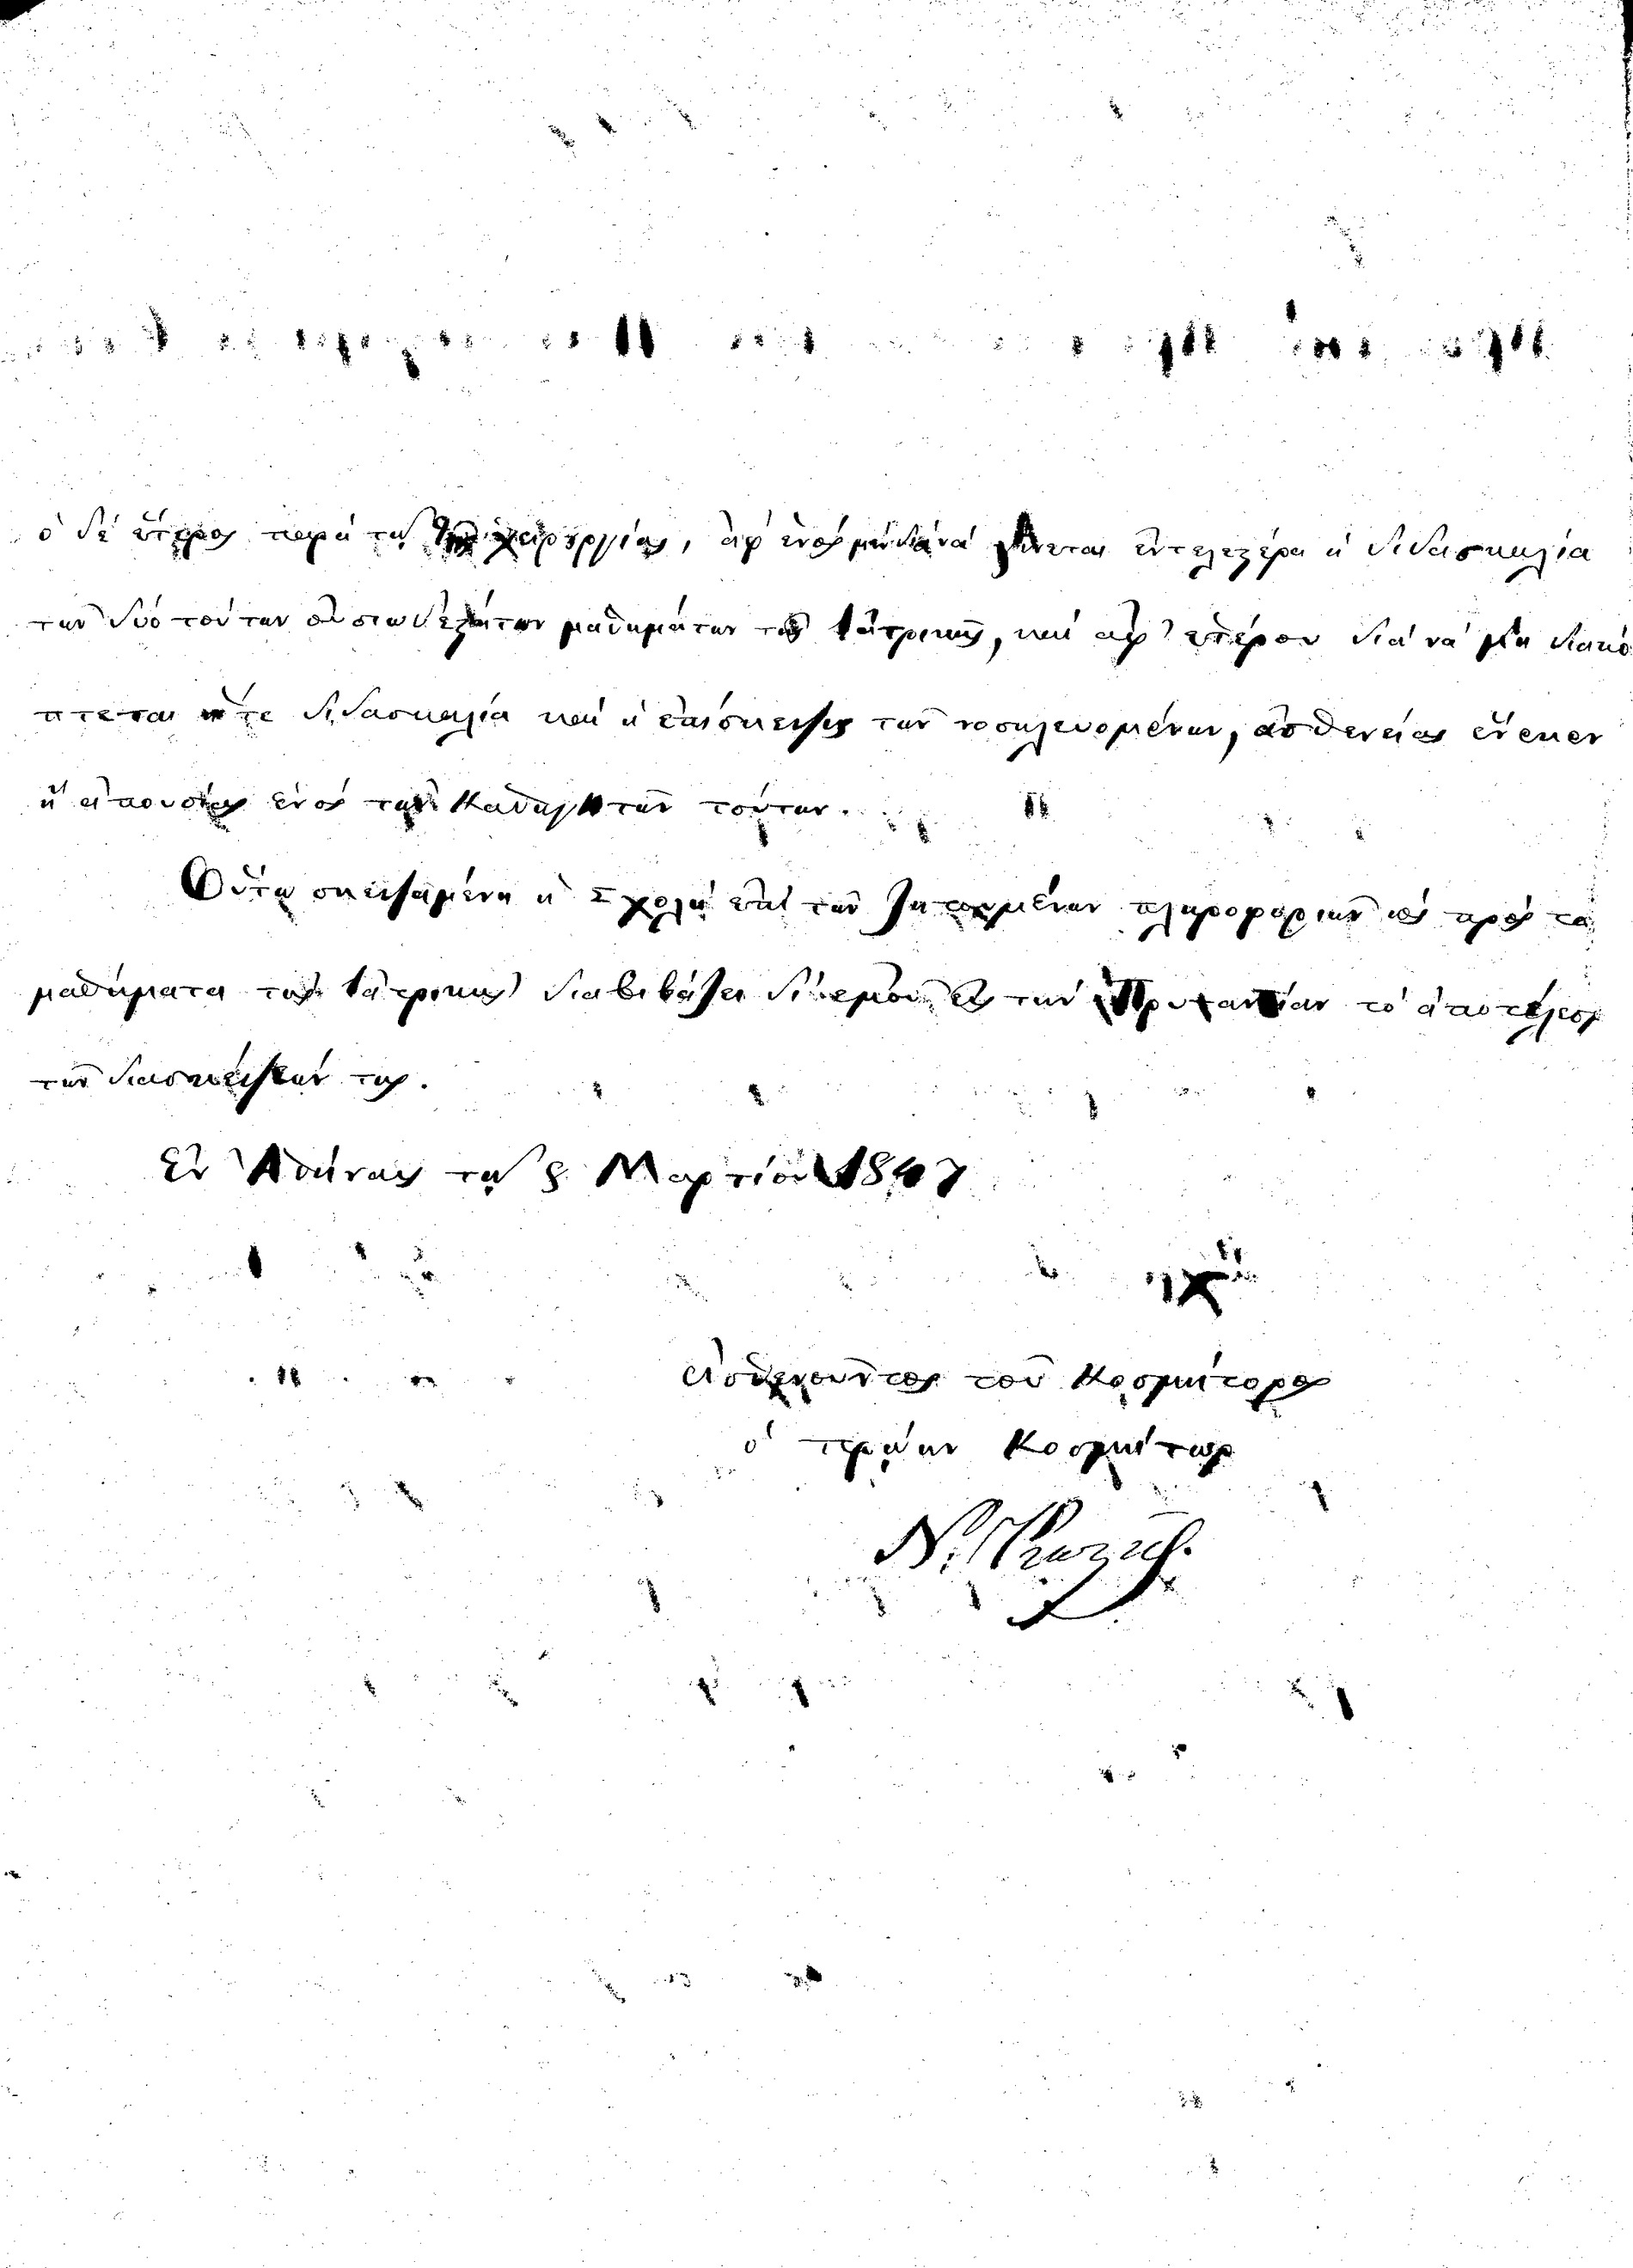 ὁ δὲ ἕτερος παρὰ τῆς χειρουργίας, ἀφ' ἑνὸς μὲν διὰ νὰ γίνεται ἐντελεστέρα ἡ διδασκαλία
τῶν δύο τούτων οὐσιωδεστάτων μαθημάτων τῆς Ἰατρικῆς, καὶ ἀφ' ἑτέρου διὰ νὰ μὴ διακό
πτεται ἥ τε διδασκαλία καὶ ἡ ἐπίσκεψις τῶν νοσηλευομένων, ἀσθενείας ἕνεκεν
ἢ ἀπουσίας ἑνὸς τῶν Καθηγητῶν τούτων.
Οὕτω σκεψαμένη ἡ Σχολὴ ἐπὶ τῶν ζητουμένων πληροφοριῶν ὡς πρὸς τὰ
μαθήματα τῆς Ἰατρικῆς διαβιβάζει δι' ἐμοῦ εἰς τὴν Πρυτανείαν τὸ ἀποτέλεσμ
τῶν διασκέψεών της.
Ἐν Ἀθήναις τῇ 8 Μαρτίου 1847
Ἀσθενοῦντος τοῦ Κοσμήτορος
ὁ πρώην Κοσμήτωρ
Ν.